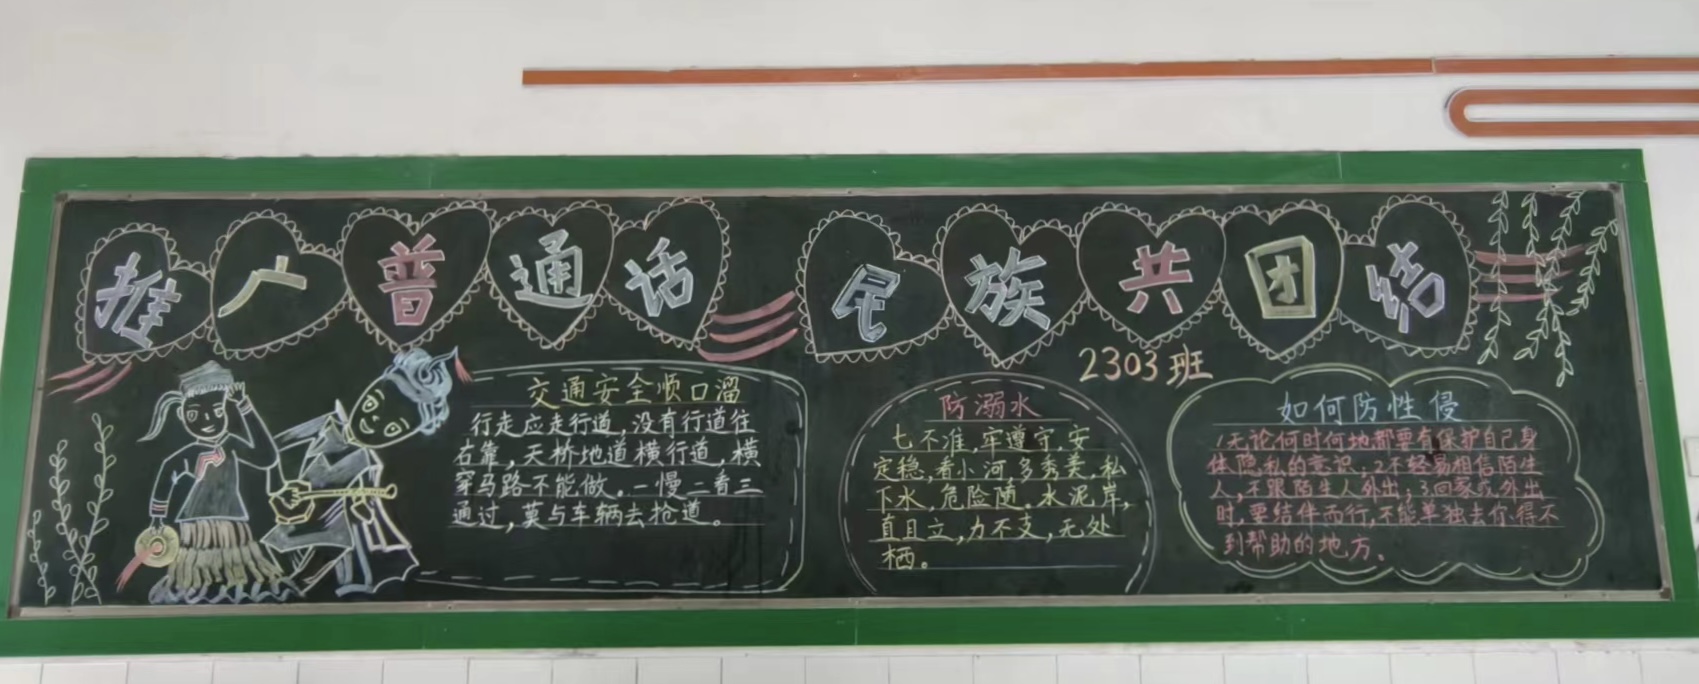 推广普通话 民族共团结
2303班
交通安全顺口溜
行走应走行道，没有行道往
右靠，天桥地道横行道，横
穿马路不能做。一慢二看三
通过，莫与车辆去抢道。
防溺水
七不准，牢遵守，安
定稳，看小河，多秀美，私
下水，危险随。水泥岸，
直且立，力不支，无处
栖。
如何防性侵
1无论何时何地都要有保护自己身
体隐私的意识；2不轻易相信陌生
人，不跟陌生人外出；3回家或外出
时，要结伴而行，不能单独去你得不
到帮助的地方。